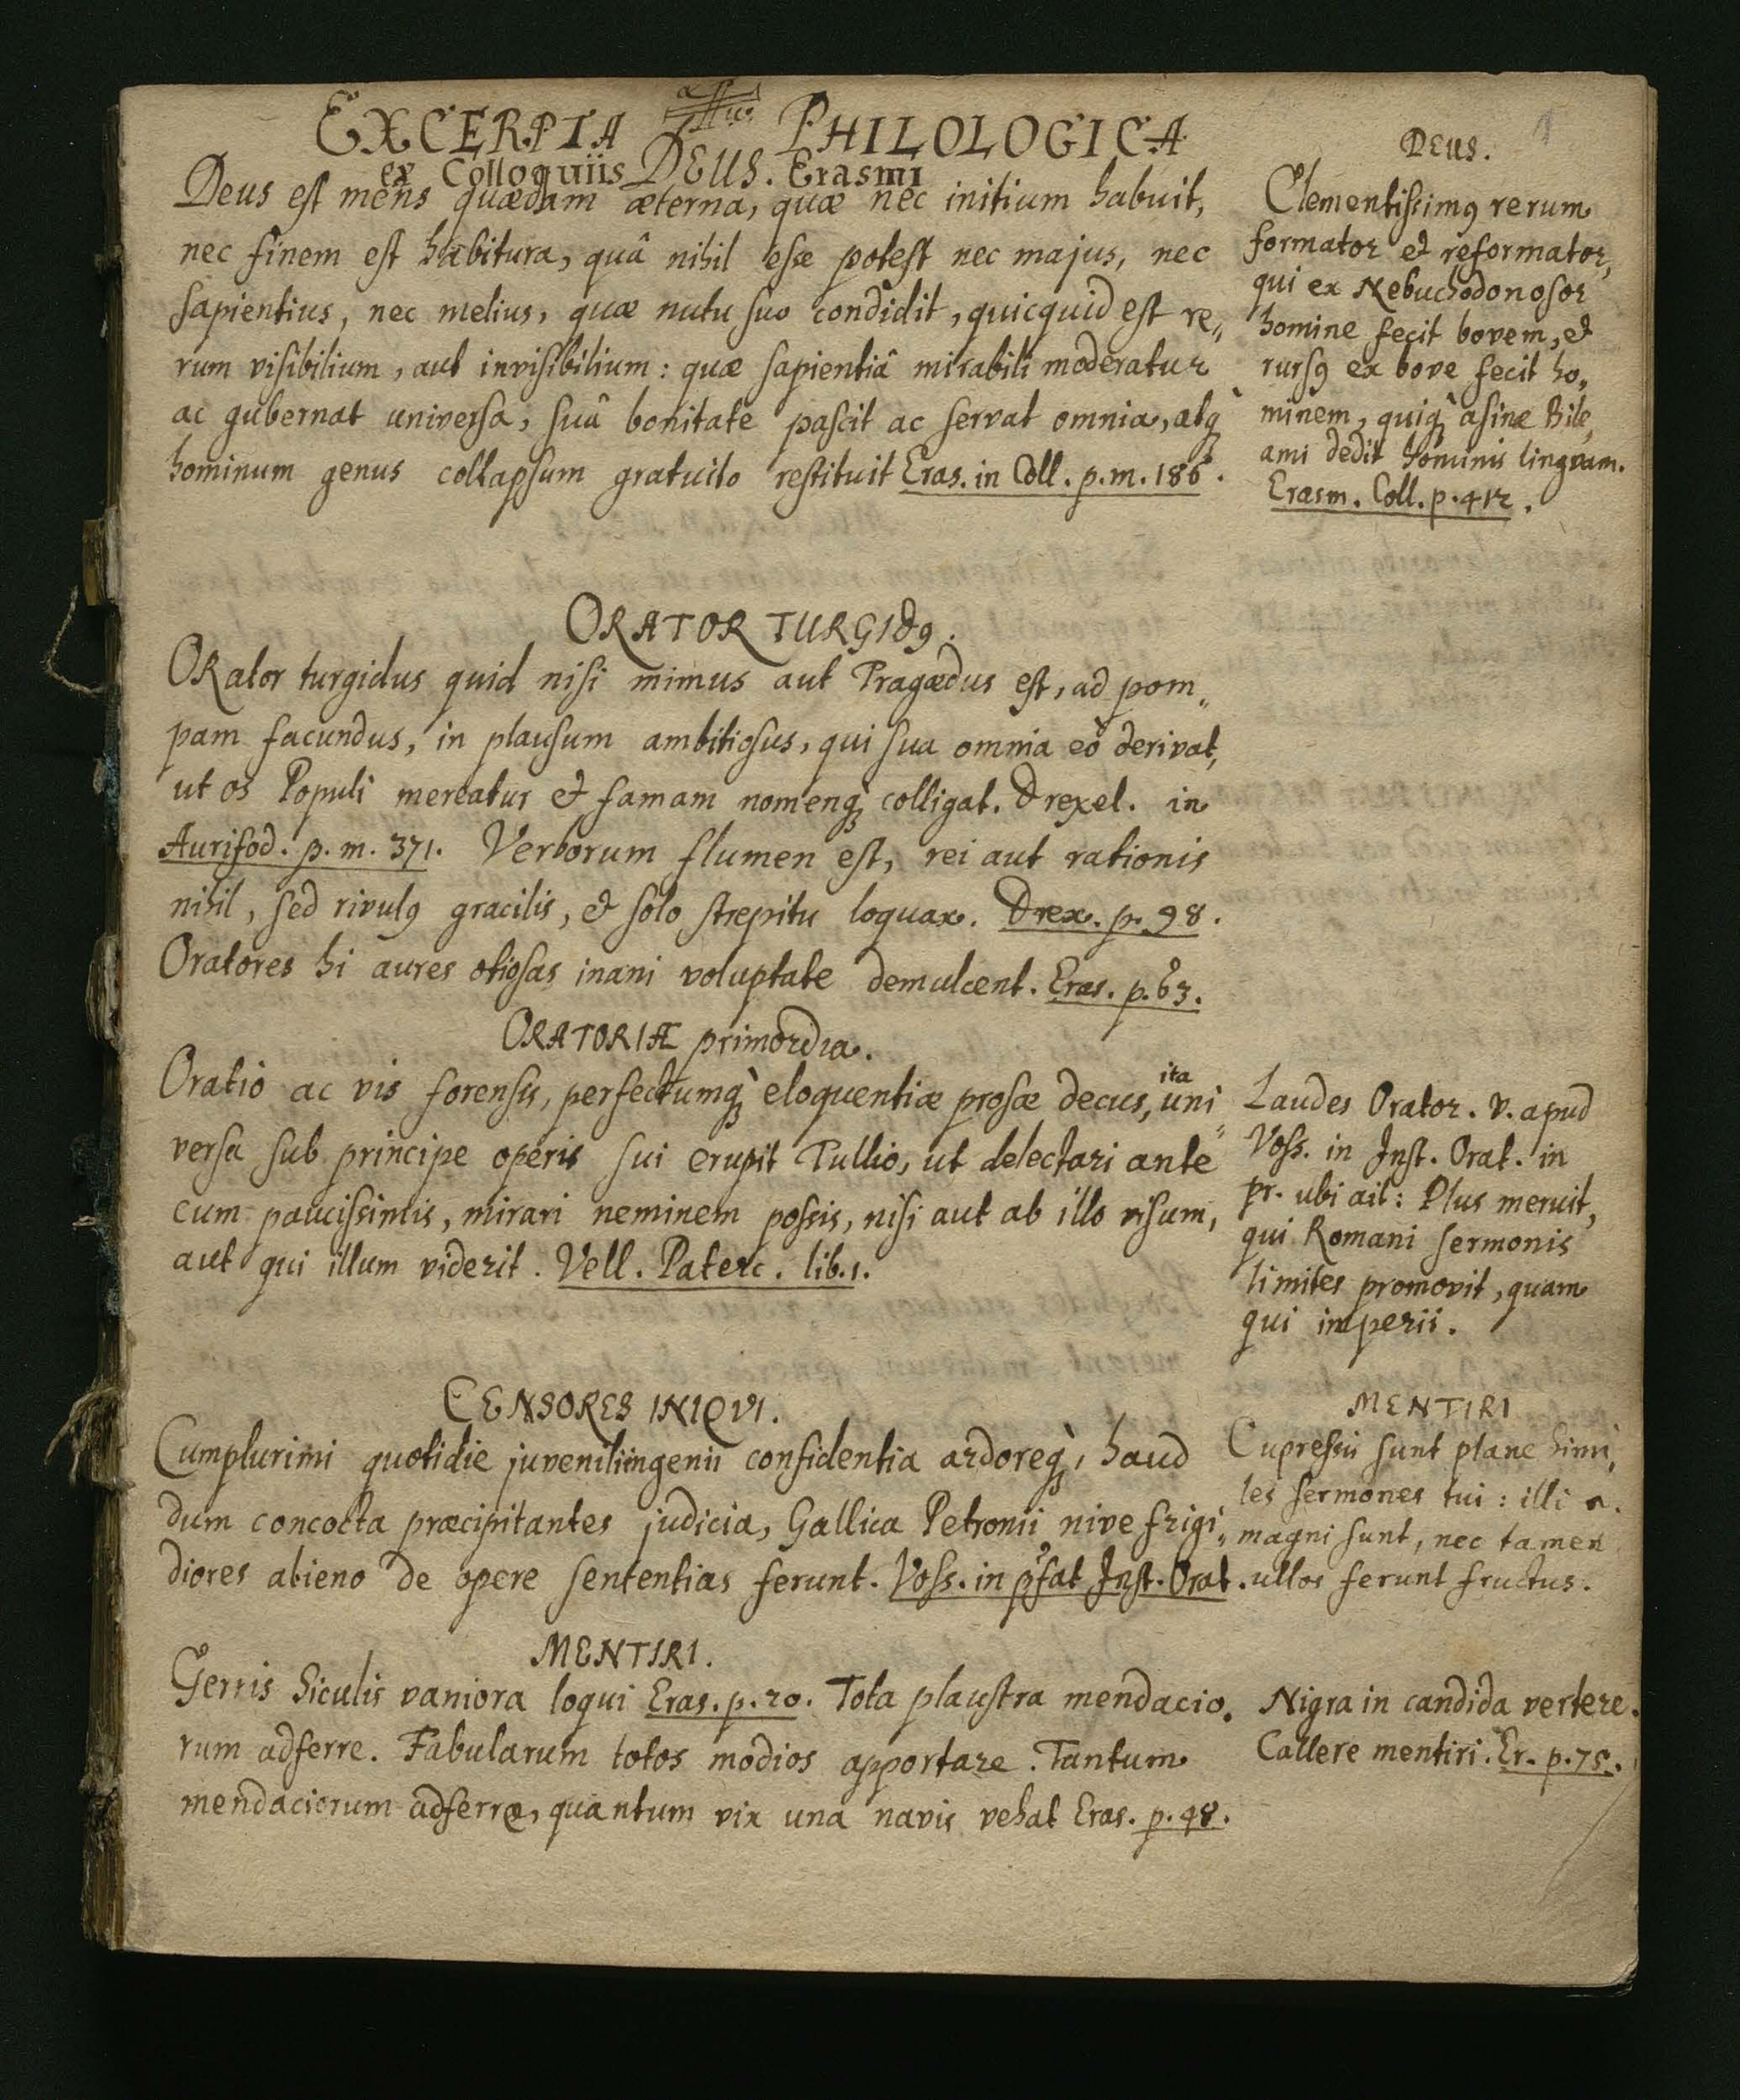 EXCERPTA PHILOLOGICA
ex Colloquiis DEUS. Erasmi
Deus est mens quædam æterna, quæ nec initium habuit,
nec finem est habitura, quâ nihil esse potest nec majus, nec
sapientius, nec melius, quæ nutu suo condidit, quicquid est re„
rum visibilium, aut invisibilium: quæ sapientiâ mirabili moderatur
ac gubernat universa, suâ bonitate pascit ac servat omnia, atq̀
hominum genus collapsum gratuito restituit Eras. in Coll. p. m. 186.
DEUS.
Clementissimꝰ rerum
formator et reformator,
qui ex Nebuchodonosor
homine fecit bovem, et
rursꝰ ex bove fecit ho„
minem, quiq̀ asinæ Bile„
ami dedit hominis lingvam.
Erasm. Coll. p. 412.
ORATOR TURGIDꝰ.
ORator turgidus quid nisi mimus aut Tragædus est, ad pom„
pam facundus, in plausum ambitiosus, qui sua omnia eò derivat,
ut os Populi mereatur et famam nomenq̀ colligat. Drexel. in
Aurifod. p. m. 371. Verborum flumen est, rei aut rationis
nihil, sed rivulꝰ gracilis, et solo strepitu loquax. Drex. p. 98.
Oratores hi aures otiosas inani voluptate demulcent. Eras. p. 63.
ORATORIÆ primordia.
Oratio ac vis forensis, perfectumq̀ eloquentiæ prosæ decus, ita uni„
versa sub principe operis sui erupit Tullio, ut delectari ante
cum paucissimis, mirari neminem possis, nisi aut ab illo visum,
aut qui illum viderit. Vell. Paterc. lib. 1.
Laudes Orator. v. apud
Voss. in Inst. Orat. in
pr. ubi ait: Plus meruit,
qui Romani sermonis
limites promovit, quam
qui imperii.
CENSORES INIQVI.
Cumplurimi quotidie juveniliingenii confidentia ardoreq̀, haud
dum concocta præcipitantes judicia, Gallica Petronii nive frigi„
diores alieno de opere sententias ferunt. Voss. in p̃fat Inst. Orat.
MENTIRI
Cupressi sunt plane simi„
les sermones tui: illi n.
magni sunt, nec tamen
ullos ferunt fructus.
MENTIRI.
Gerris Siculis vaniora loqui Eras. p. 20. Tota plaustra mendacio„
rum adferre. Fabularum totos modios apportare. Tantum
mendaciorum adferre, quantum vix una navis vehat Eras. p. 48.
Nigra in candida vertere.
Callere mentiri. Er. p. 75.